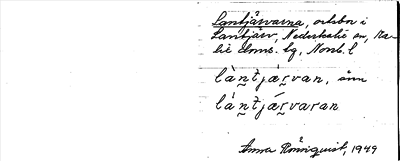 Lantjärvarna, ortsbor i
Lantjärv, Nederkalix sn, Ka-
lix lmd. bg, Norrb. l
làn̬tjä́r̬van, även
lán̬tjä́r̬varan
Anna Rönnqvist, 1949